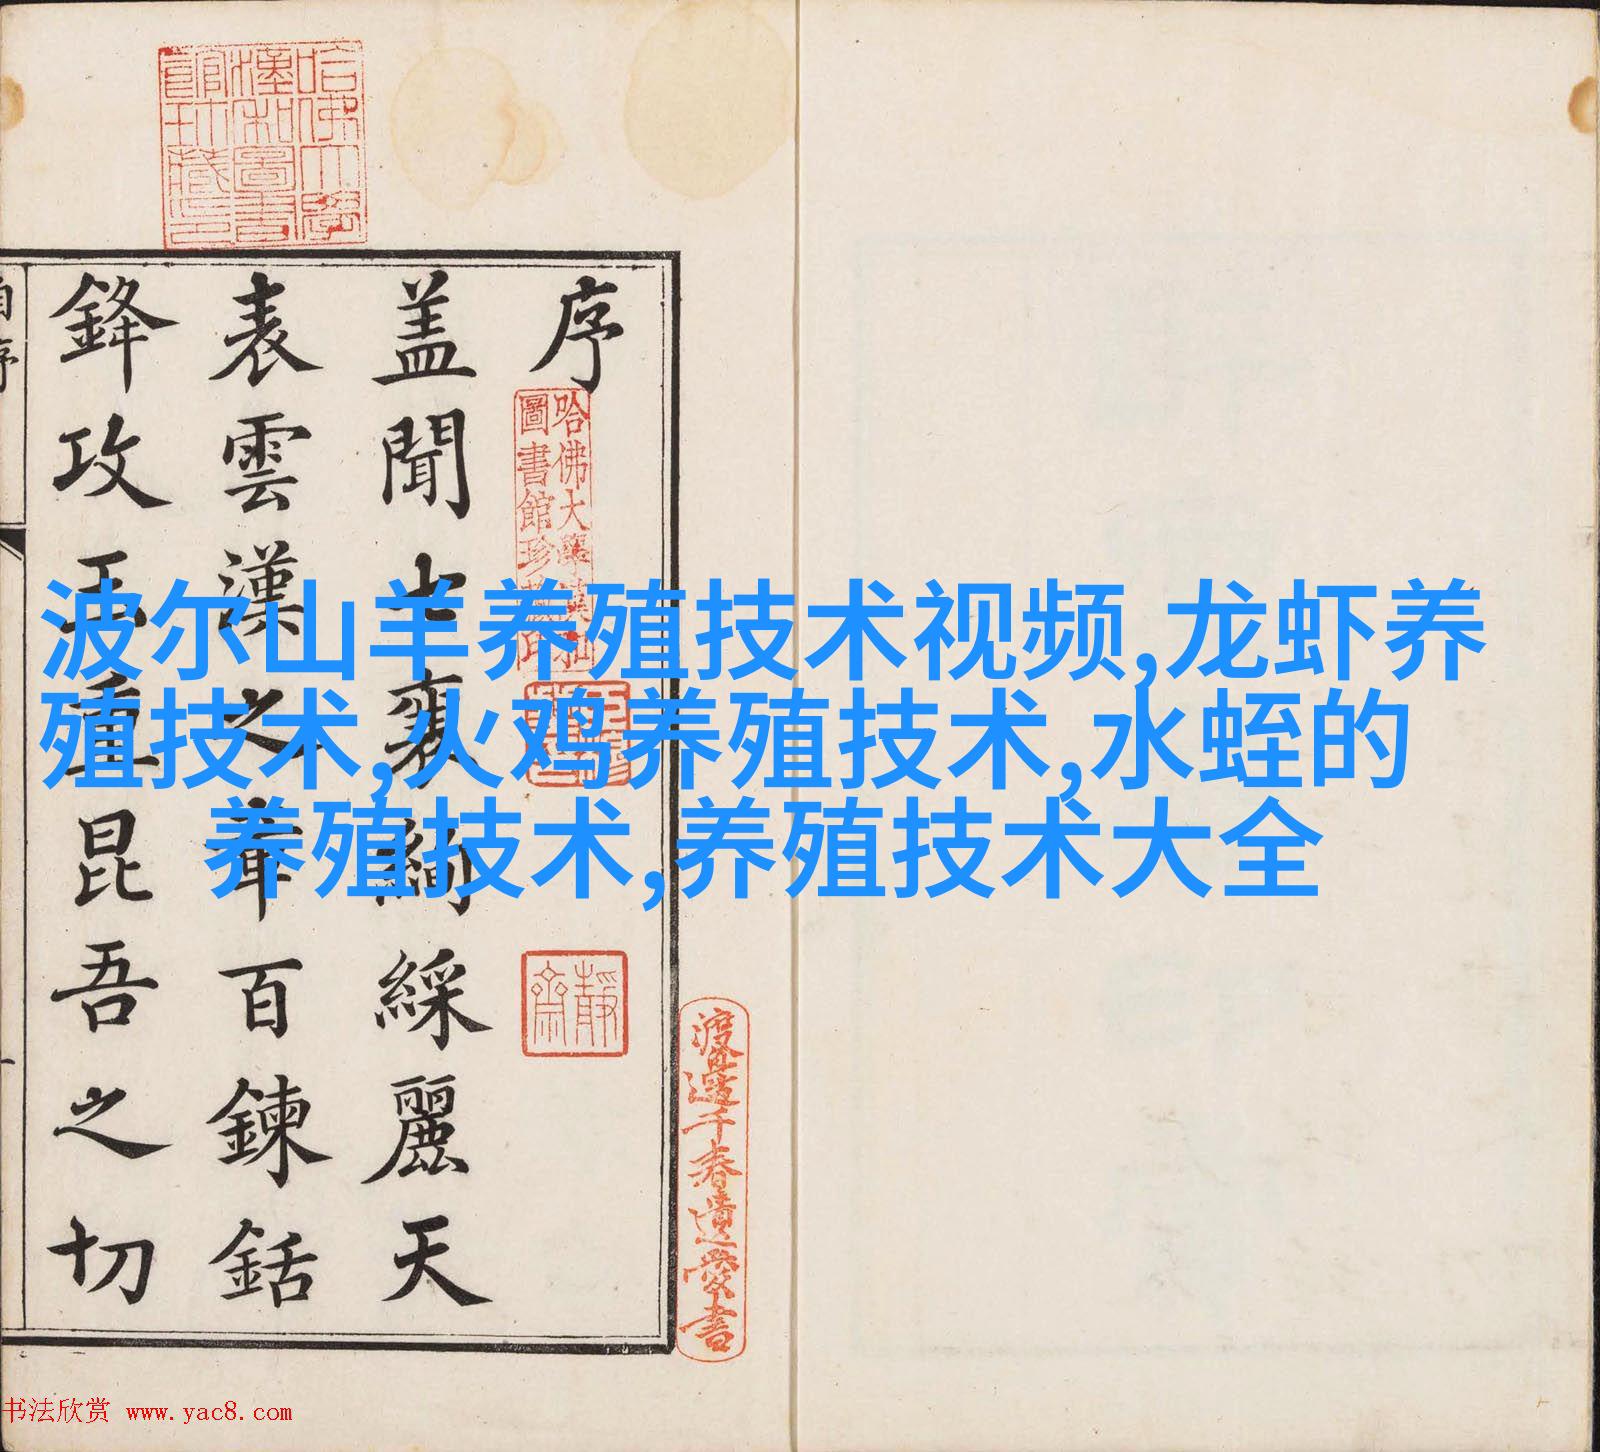 哈佛大學
漢和圖書
館珎藏印
序
蓋聞士襄絢綵麗天
表雲漢之章百鍊銛
鋒攻玉重昆吾之切
自序
哈佛大學漢和
圖書館珍藏印
靜齋
渡邊千春遺愛書
波尔山羊养殖技术视频,龙虾养
殖技术,火鸡养殖技术,水蛭的
养殖技术,养殖技术大全
书法欣赏 www.yac8.com